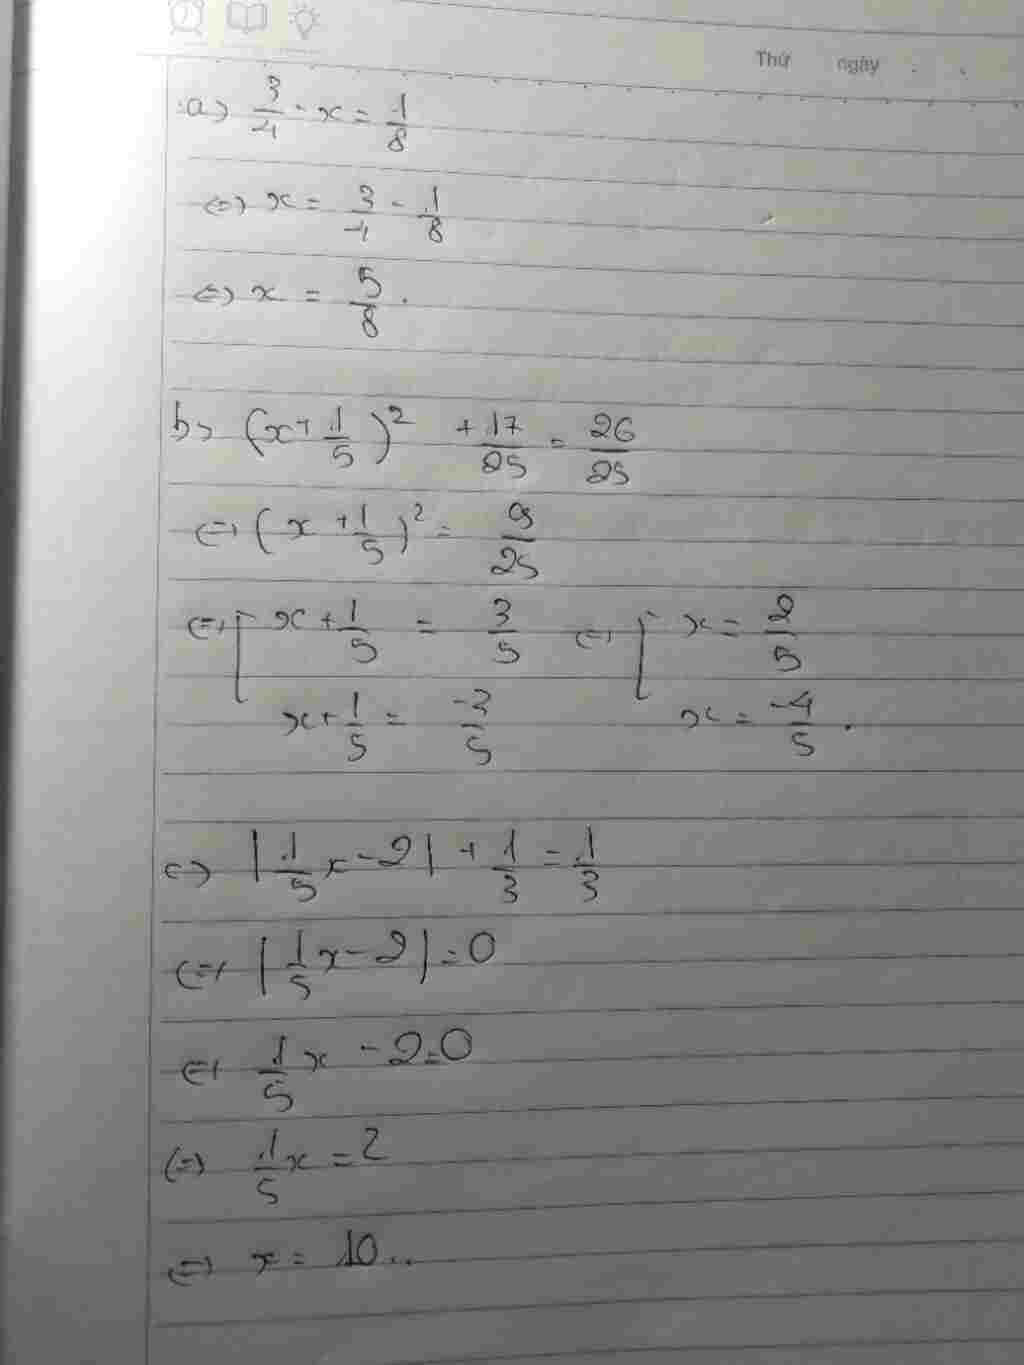 Thứ ngày
a) 3/4 - x = 1/8
<=> x = 3/4 - 1/8
<=> x = 5/8.
b) (x + 1/5)² + 17/25 = 26/25
<=> (x + 1/5)² = 9/25
<=> [ x + 1/5 = 3/5 <=> [ x = 2/5
x + 1/5 = -3/5 x = -4/5.
c) |1/5x - 2| + 1/3 = 1/3
<=> |1/5x - 2| = 0
<=> 1/5x - 2 = 0
<=> 1/5x = 2
<=> x = 10..